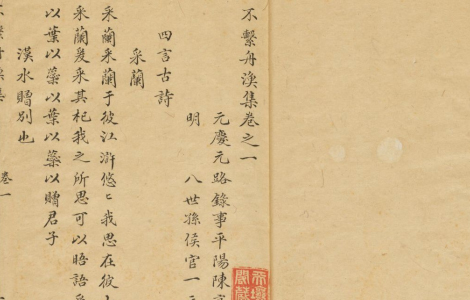 不繫舟漁集卷之一
元慶元路錄事平陽陳
明 八世孫侯官一
四言古詩
采蘭
采蘭采蘭于彼江滸悠〻我思在彼
采蘭爰采其杞我之所思可以晤語
以葉以蘂以葉以蘂以贈君子
漢水贈別也
卷一